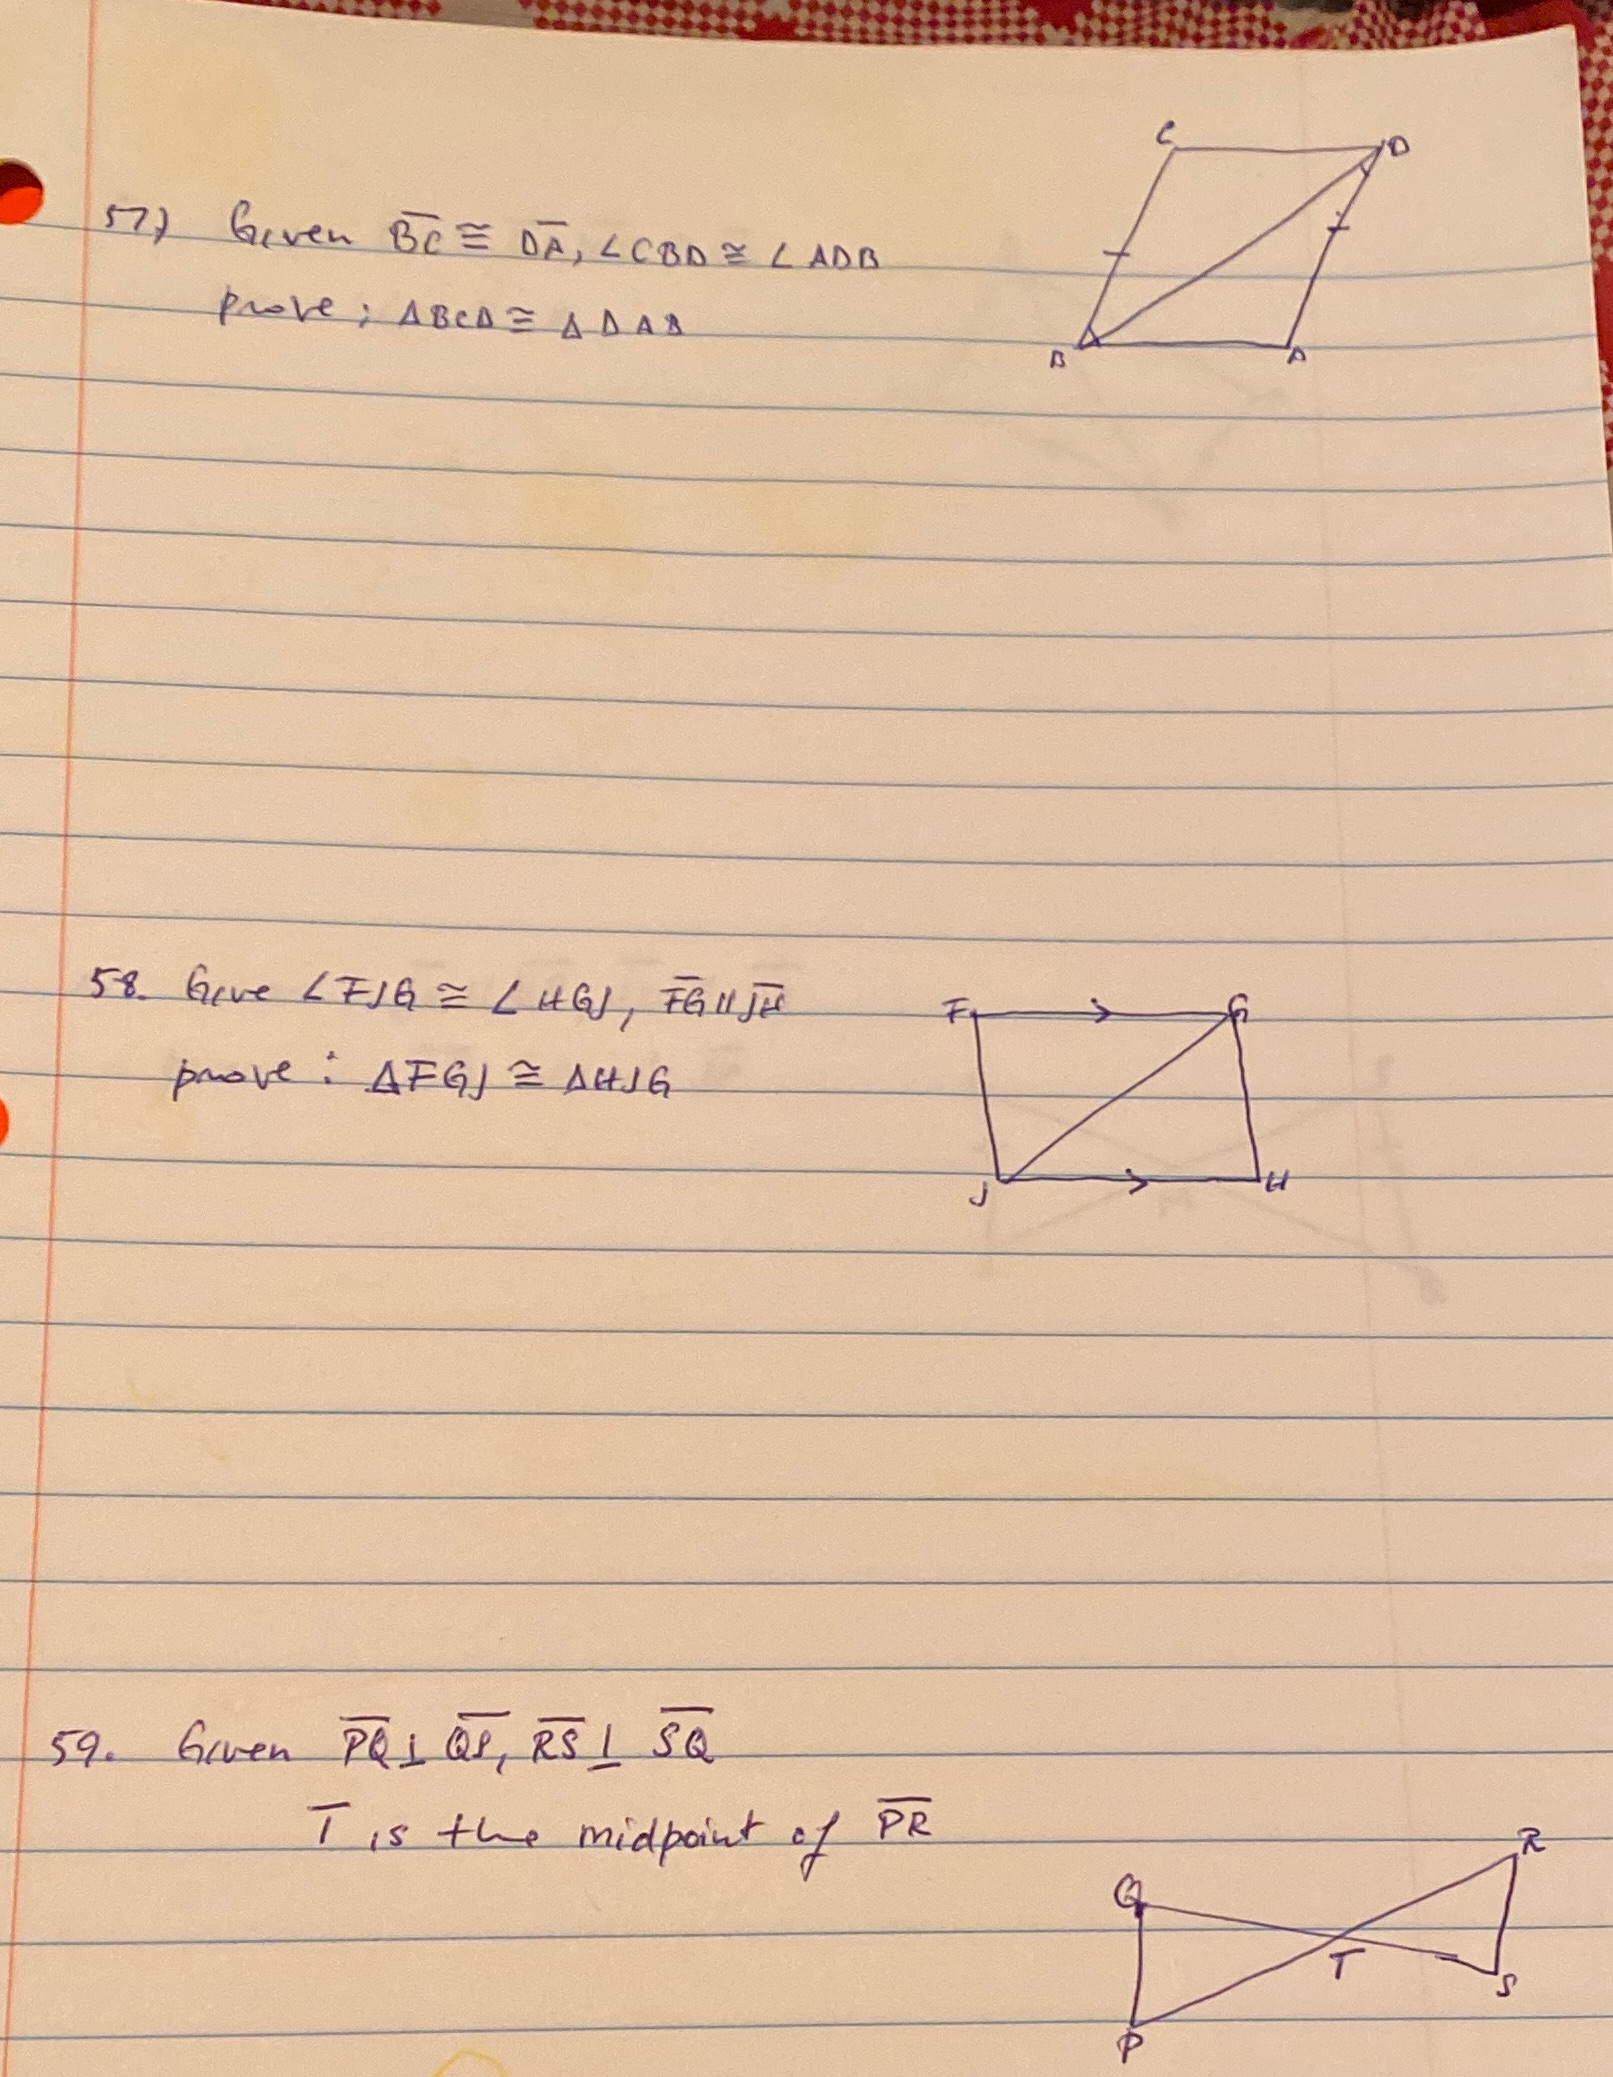 C D
57) Given B̅C̅ ≅ D̅A̅, ∠CBD ≅ ∠ADB
prove; ΔBCD ≅ ΔDAB
B A
58. Give ∠FJG ≅ ∠HGJ, F̅G̅ || J̅H̅
F G
prove: ΔFGJ ≅ ΔHJG
J H
59. Given P̅Q̅ ⊥ Q̅S̅, R̅S̅ ⊥ S̅Q̅
T̅ is the midpoint of P̅R̅
R
Q
T
S
P